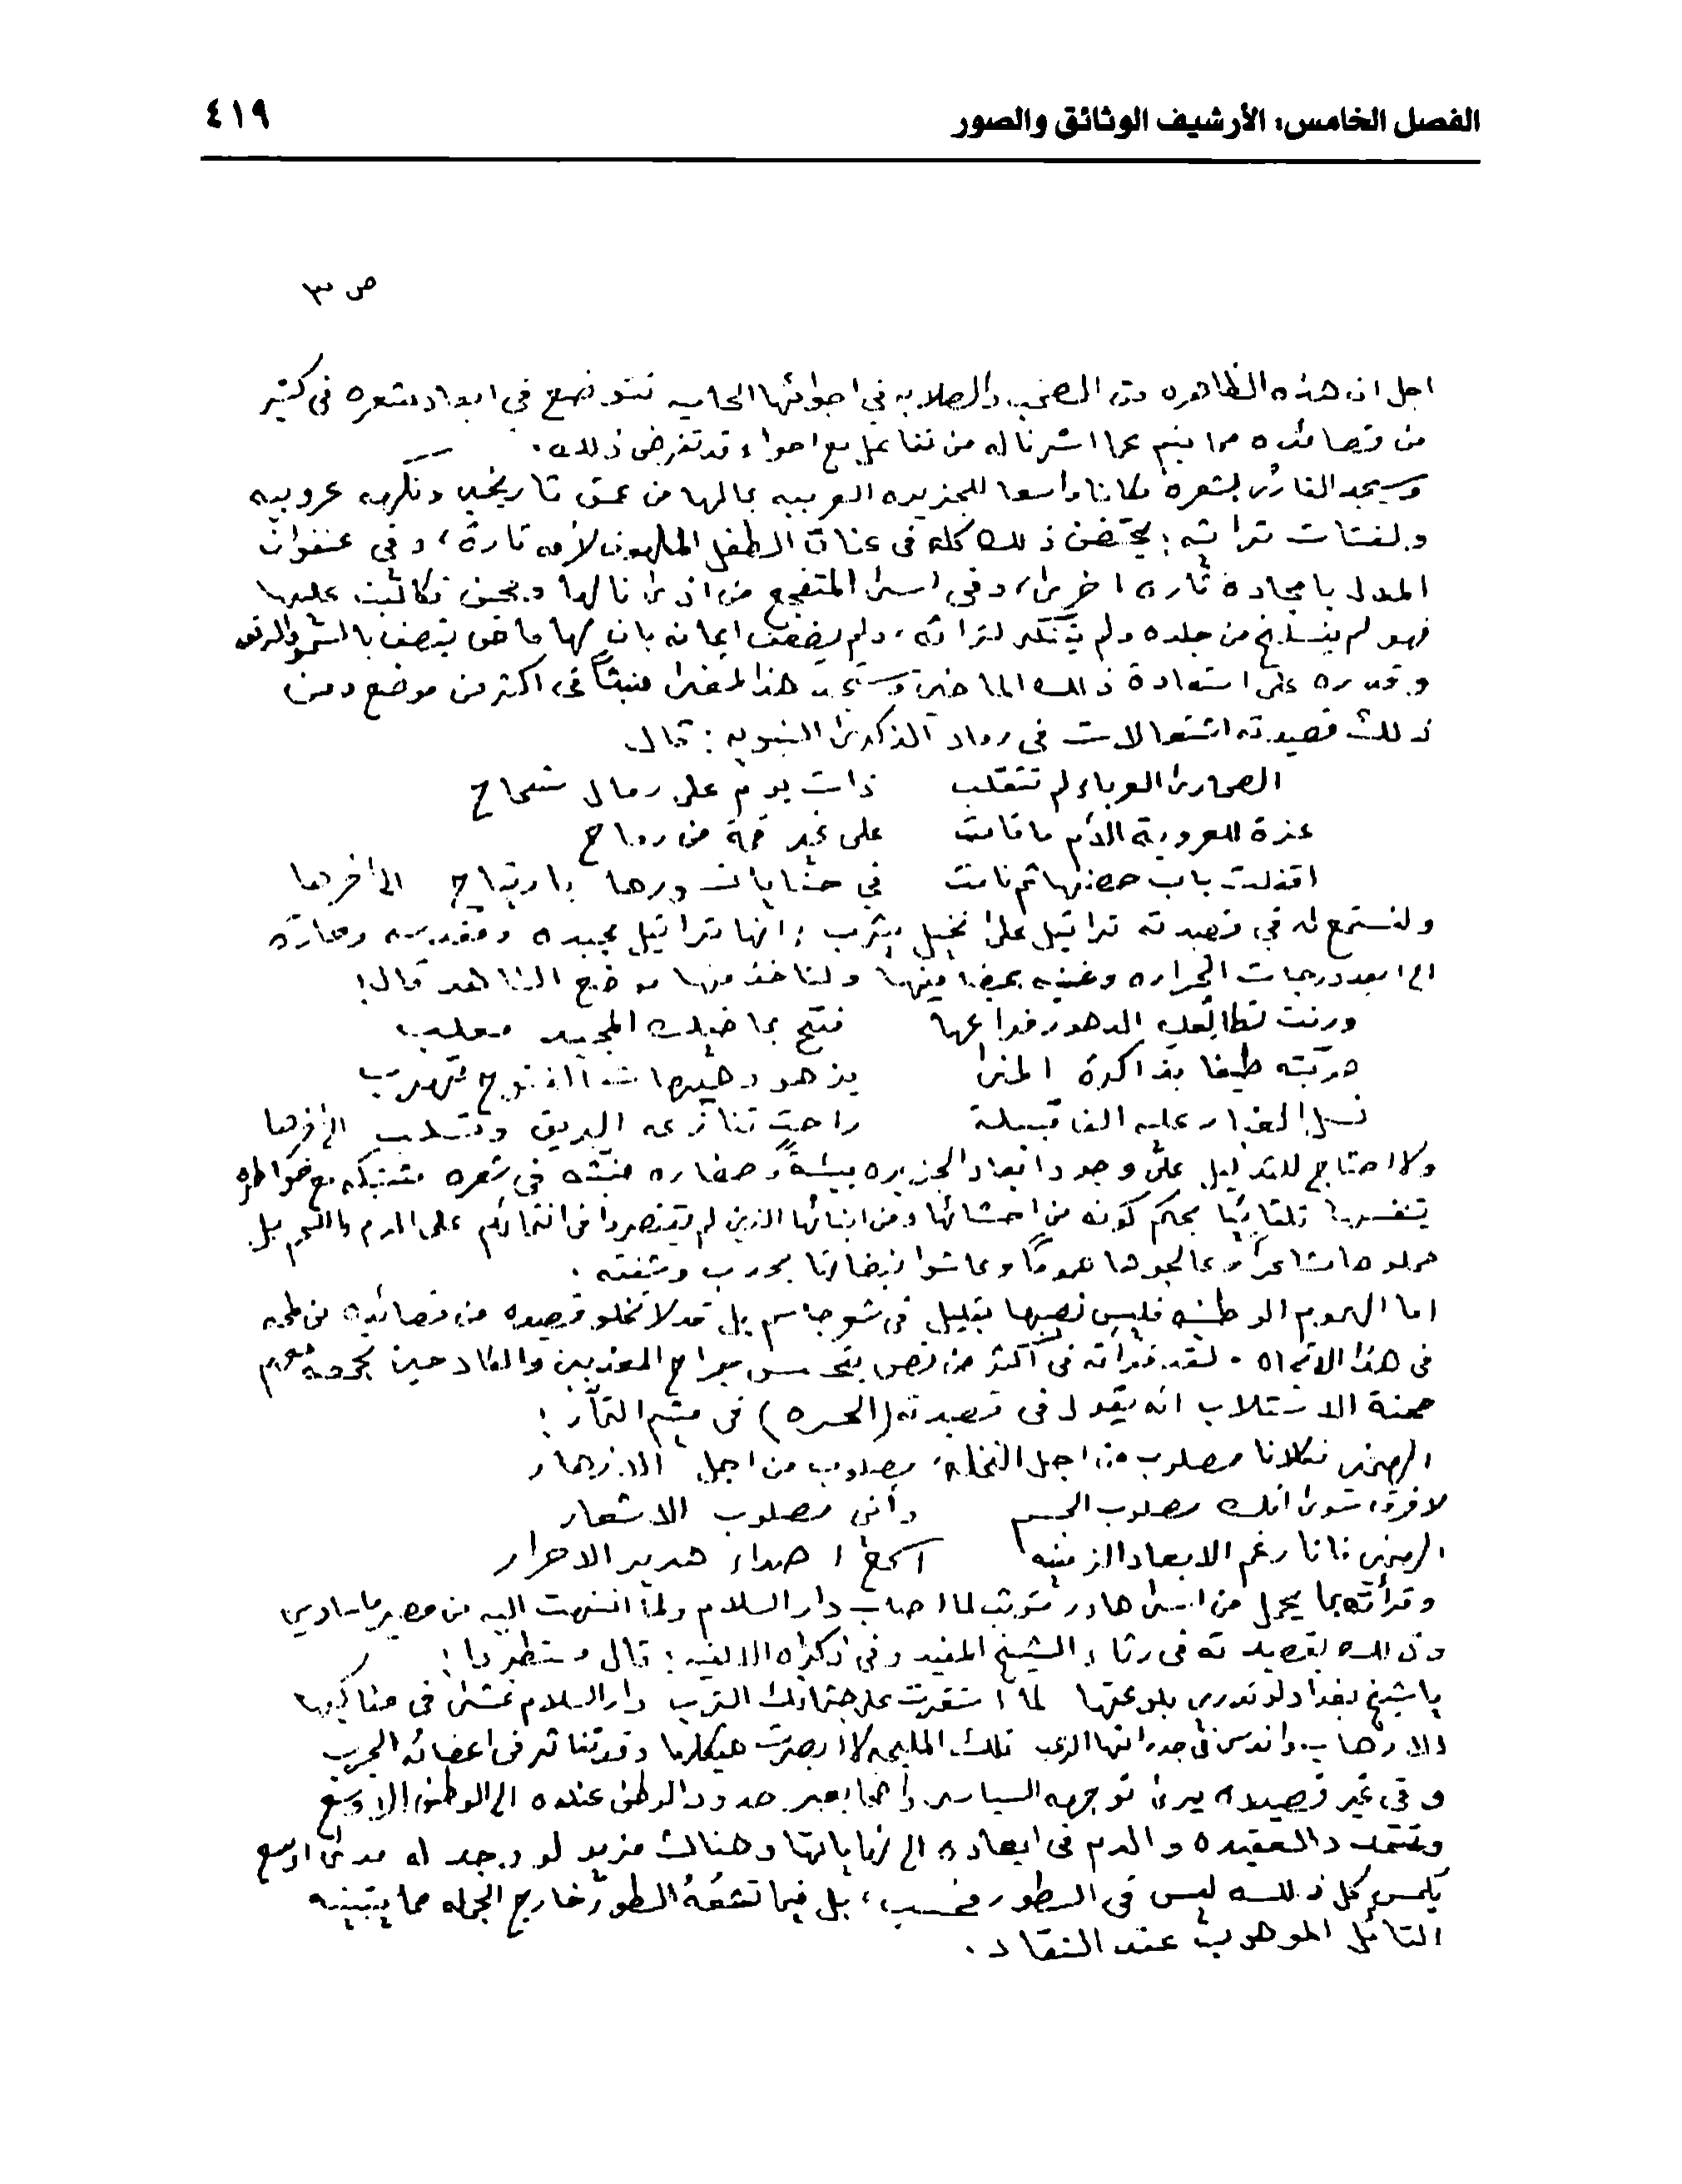 الفصل الخامس: الأرشيف الوثائق والصور
٤١٩
ص ٣
اجل ان هذه الظاهره من الصخب والصلابه في اجوائها الحاميه تتوضع في ابعاد شعره في كثير
من قصائده مما ينم عما اشرنا له من تفاعل مع اجواء قد تفرض ذلك.
وسيجد القارئ بشعره مكانا واسعا للجزيره العربيه بمالها من عمق تاريخي ونكهه عروبيه
ولفتات تراثيه: يحتضن ذلك كله في عناق الطفل الملهوف لأمه تارة، وفي عنفوان
المدل بامجاده تاره اخرى، وفي اسى المتفجع من اذى نالها ومحن تكالبت عليها
فهو لم ينسلخ من جلده ولم يتنكر لتراثه، ولم يضعف ايمانه بان لها ماض يتصف بالشمو والرفعه
وقدره على استعادة ذلك الماضي وستجد هذا المغنى منبثاً في اكثر من موضع ومن
ذلك قصيدته اشتعالات في رماد الذكرى النبويه: قال
الصحارى العرباء لم تنقلب ذات يوم على رمال شحاح
عزة للعروبة الأم ما قامت على غير قمة من رماح
اقفلت باب حصنها ثم نامت في حنايا سورها بارتياح الى أخرها
ولنستمع له في قصيدته تراتيل على نخيل يثرب: انها تراتيل
الى ابعد درجات الحراره ولنأخذ منها موضع الشاهد قال:
ورنت تطالعك الدهور فراعها فتح بماضيك المجيد معلب
مرّبته طيفا بذاكرة المنى يزهو وهيهات الفتوح تهرب
نسل الغبار عليه الف قبيلة راحت تنازعه البريق وتسلب الى أخرها
ولا احتاج للتدليل على وجود ابعاد الجزيره بيئةً وحضاره منبثه في شعره مشتبكه مع خواطره
يتنفسها تلقائيا بحكم كونه من احشائها ومن ابنائها الذين لم يقتصروا في انتمائهم على الدم واللحم بل
حملوها مشاعراً وعالجوها هموما وعاشوا نبضاتها بحدب وشغف.
اما الهموم الوطنيه فليس نصيبها بقليل في شعر جاسم بل قد لا تخلو قصيده من قصائده من لمحه
في هذا الاتجاه. لقد قرأته في أكثر من نص يتحسس جراح المعذبين والكادحين
محنة الاستلاب انه يقول في قصيدته (الحسره) في ميثم التمّار:
الهمني فكلانا مصلوب من اجل النخلة، مصلوب من اجل الازهار
لا فرق سوى انك مصلوب الجسم وأني مصلوب الاشعار
الهمني فانا رغم الابعاد الزمنيه اصداء هدير الاحرار
وقرأته بما يحمل من اسى هادر متوثب لما اصاب دار السلام ولما انتهت اليه من مصير مأساوي
وذلك بقصيدته في رثاء الشيخ المفيد وفي ذكراه الالفيه: قال مستطردا:
يا شيخ بغداد لو تدري بلوعتها لما استقرت على جثمانك الترب دار السلام تمشى في مناكبها
الارهاب واندس في جدرانها الرعب تلك المليحه لا ابصرت هيكلها وقد تناثر في اعضائه الجرب
وفي غير قصيده يرى توجهه السياسي واضحا يعبر حدود الوطن عنده الى الوطن الاوسع
وتتمدد العقيده والدم في ابعاده الى نهاياتها وهناك مزيد لو وجد له مدى اوسع
يلمس كل ذلك ليس في السطور فحسب، بل فيما تشعّهُ السطور خارج الجمله مما يتبينه
التأمل الموهوب عند النقاد.